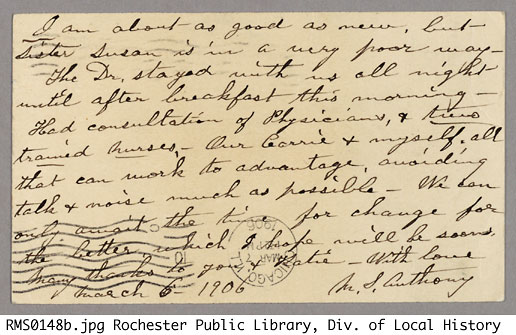 I am about as good as new, but
sister Susan is in a very poor way -
The Dr. stayed with us all night
until after breakfast this morning -
Had consultation of Physicians, & two
trained nurses, - Our Carrie & myself, all
that can work to advantage, avoiding
talk & noise much as possible - We can
only await the time for change for
the better which I hope will be soon,
Many thanks to you & Katie - With love
March 6 1906 M. S. Anthony
CHICAGO
MAR 7
1906
10
RMS0148b.jpg Rochester Public Library, Div. of Local History